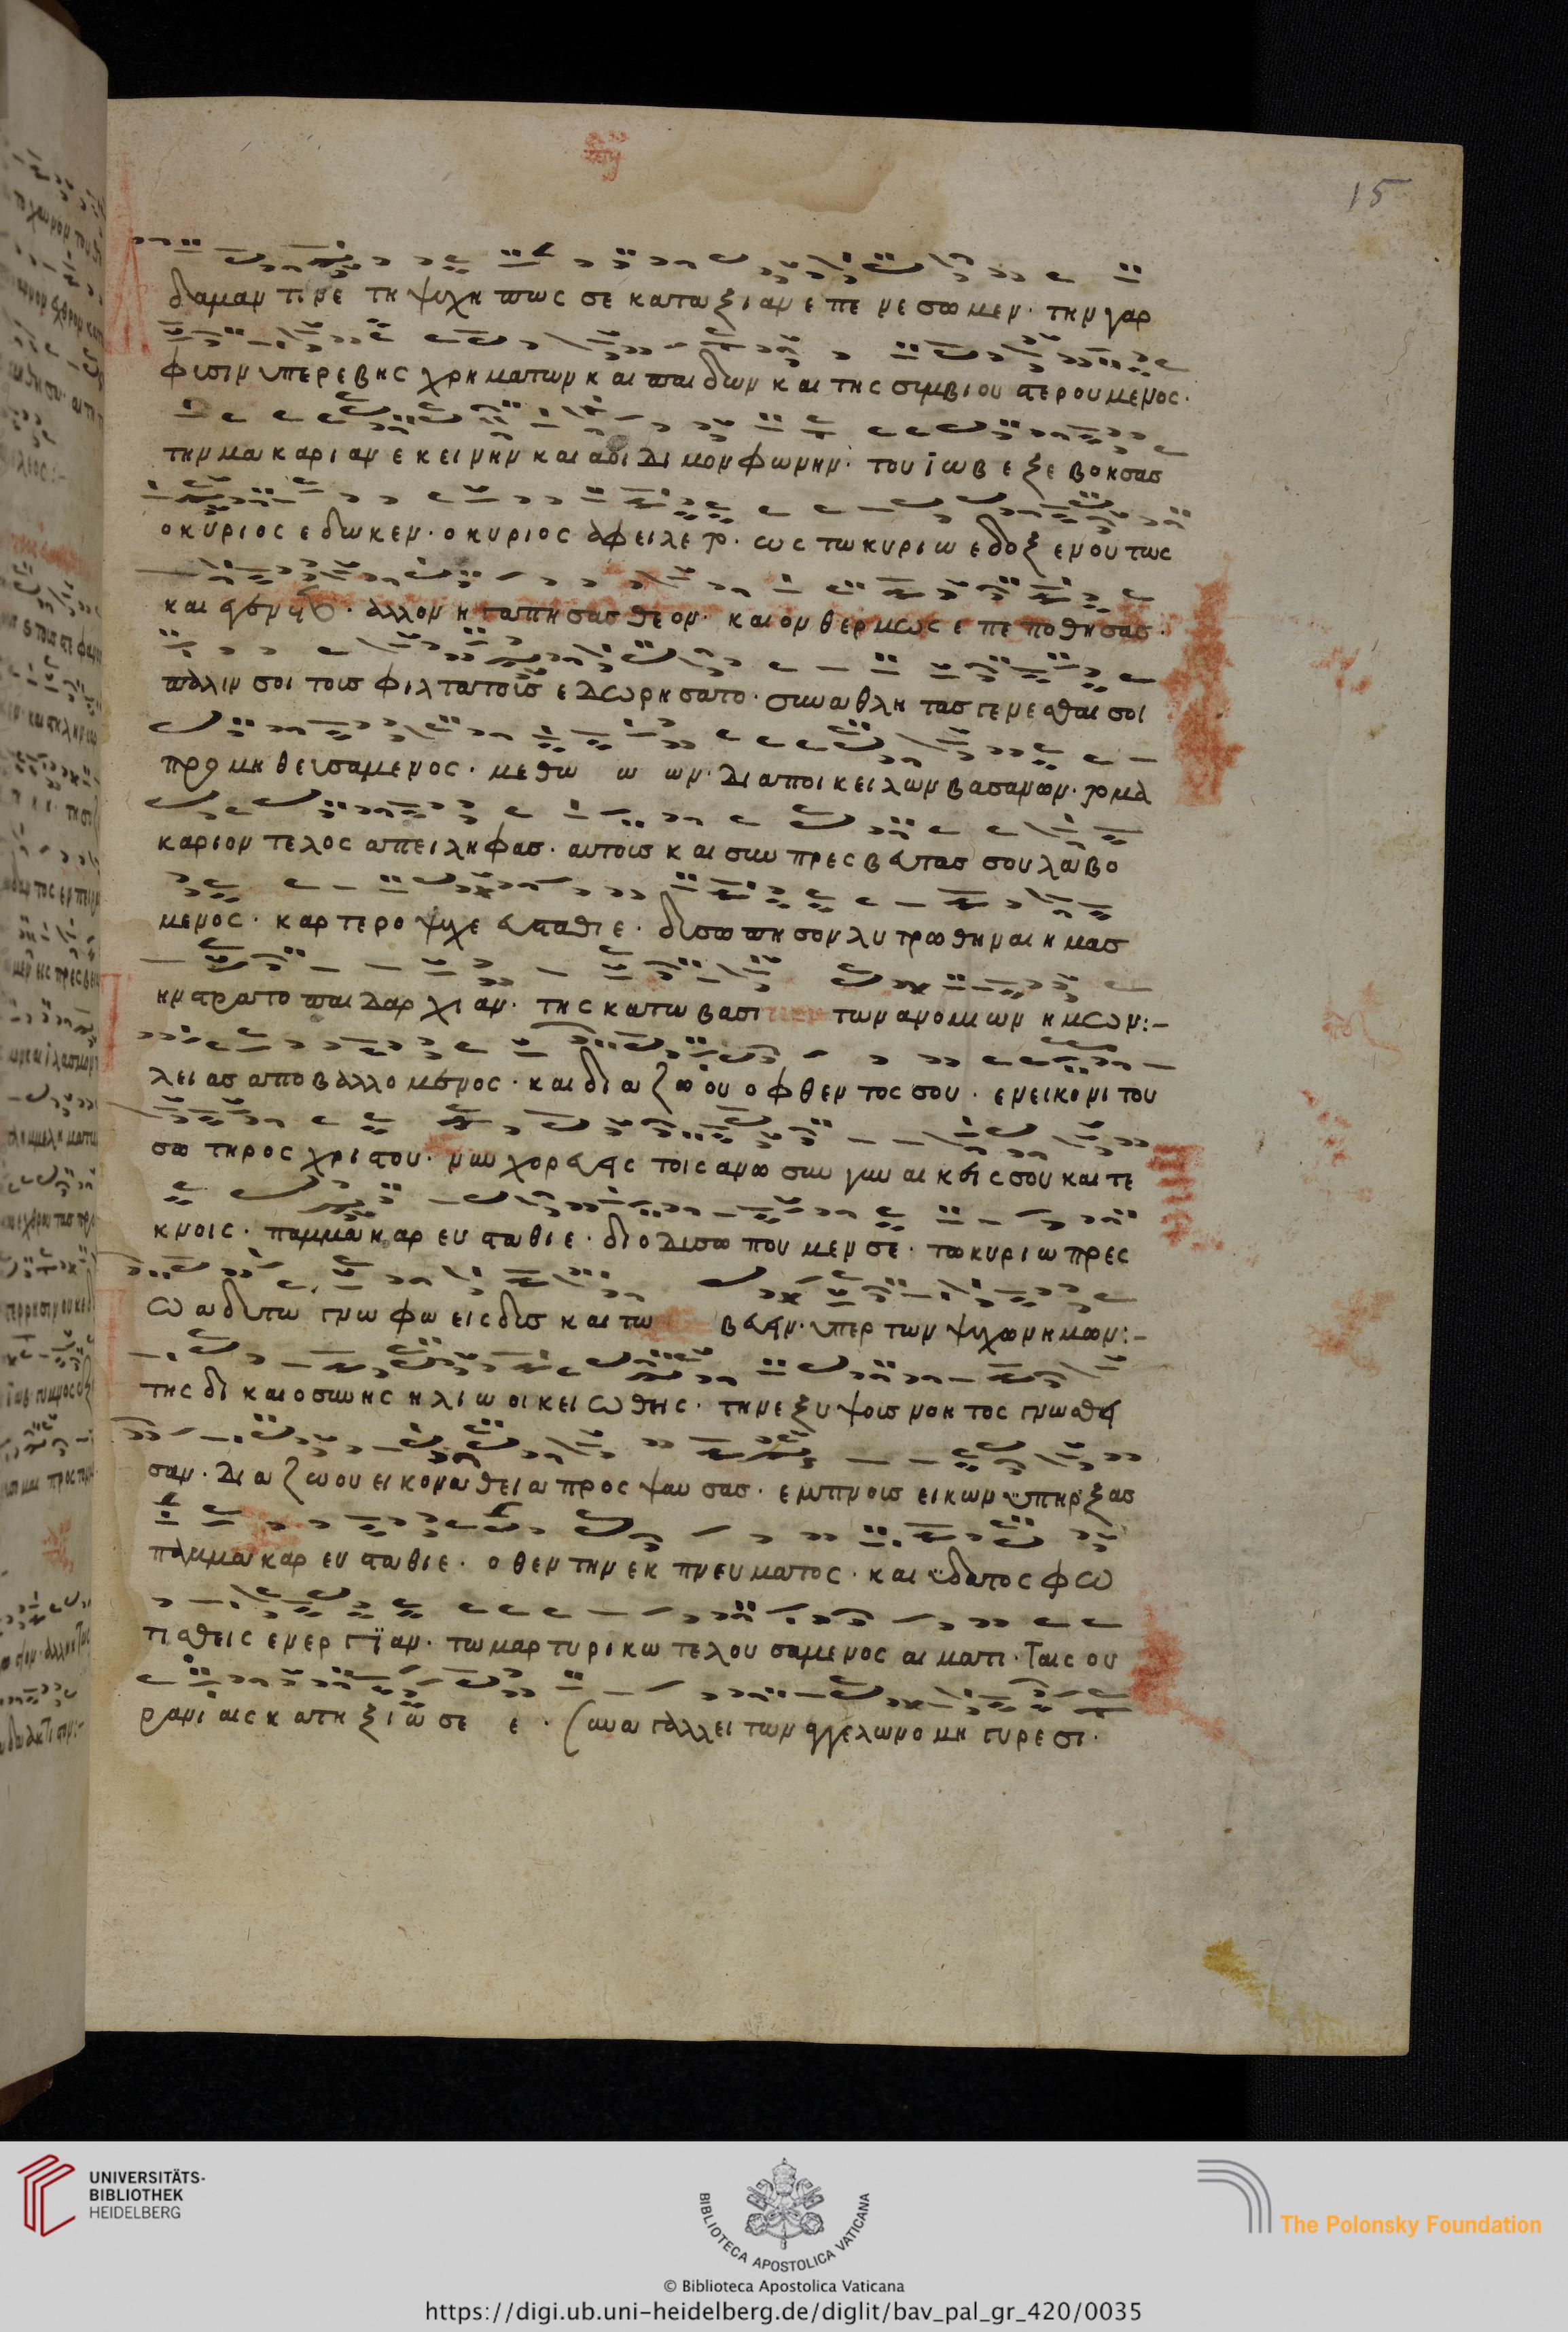 15
δαμαντινε τη ψυχη πως σε καταξιαν επενεσωμεν· την γαρ
φυσιν υπερεβης χρηματων και παιδων και της συμβιου στερουμενος·
την μακαριαν εκεινην και αοιδιμον φωνην· του ϊωβ εξεβοησας
ο κυριος εδωκεν· ο κυριος αφειλετο· ως τω κυριω εδοξεν ουτως
και · αλλον ηγαπησας θεον· και ον θερμως επεποθησας·
παλιν σοι τοις φιλτατοις εδωρησατο· συναθλητας γενεσθαι σοι
προμηθευσαμενος· μεθ ω ω ων· δια ποικειλων βασανων· το μα
καριον τελος απειληφας· αυτοις και συμπρεσβευτας συ λαβο
μενος· καρτεροψυχε ευσταθιε· δυσωπησον λυτρωθηναι ημας
την στρατοπαιδαρχιαν· της κατω βασι των ανομιων ημων:-
λειας αποβαλλομενος· και δια ζωου οφθεντος σου· εν εικονι του
σωτηρος χριστου· νυν χορευεις τοις ανω συν γυναικι σου και τε
κνοις· παμμακαρ ευσταθιε· διο δυσωπουμεν σε· τω κυριω πρες
ω αδυτω γνωφω εισδυς και τω βευειν· υπερ των ψυχων ημων:-
της δικαιοσυνης ηλιω οικειωθεις· την εξ υψους νοητος γνωσθει
σαν· δια ζωου εικονα θεια προσψαυσας· εμπνους εικων ϋπηρξας
παμμακαρ ευσταθιε· οθεν την εκ πνευματος· και ϋδατος φω
τισθεις ενεργϊαν· τω μαρτυρικω τελουσαμενος αιματι· ταις ου
ρανιαις κατηξιωσε ε· συναγαλλει των αγγελων ομηγυρεσι·
UNIVERSITÄTS-
BIBLIOTHEK
HEIDELBERG
BIBLIOTECA APOSTOLICA VATICANA
© Biblioteca Apostolica Vaticana
The Polonsky Foundation
https://digi.ub.uni-heidelberg.de/diglit/bav_pal_gr_420/0035